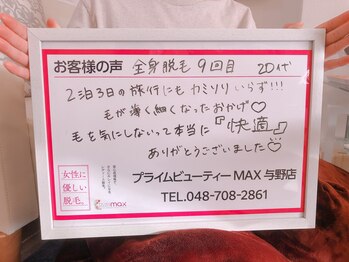 お客様の声 全身脱毛 9回目 20代
2泊3日の旅行にも カミソリ いらず!!!
毛が薄く細くなったおかげ♡
毛を気にしないって本当に『快適』
ありがとうございました♡
女性に
優しい
脱毛。
max
プライムビューティー MAX 与野店
TEL.048-708-2861